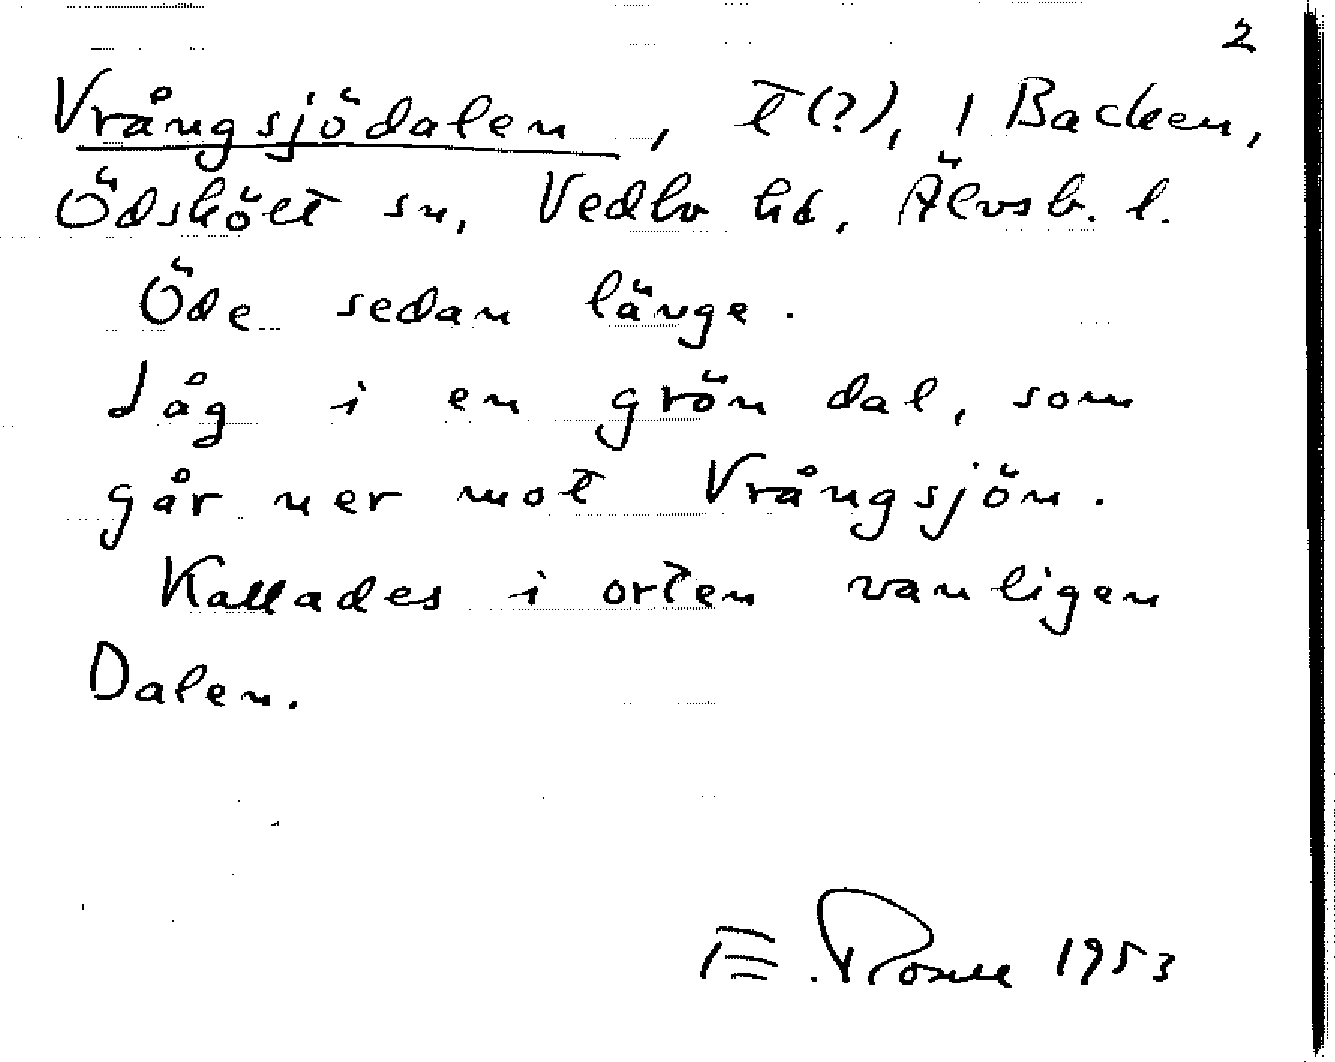 2
Vrångsjödalen, t(?), 1 Backen,
Ödskölt sn, Vedbo hd, Älvsb. l.
Öde sedan länge.
Låg i en grön dal, som
går ner mot Vrångsjön.
Kallades i orten vanligen
Dalen.
E. Rosell 1953